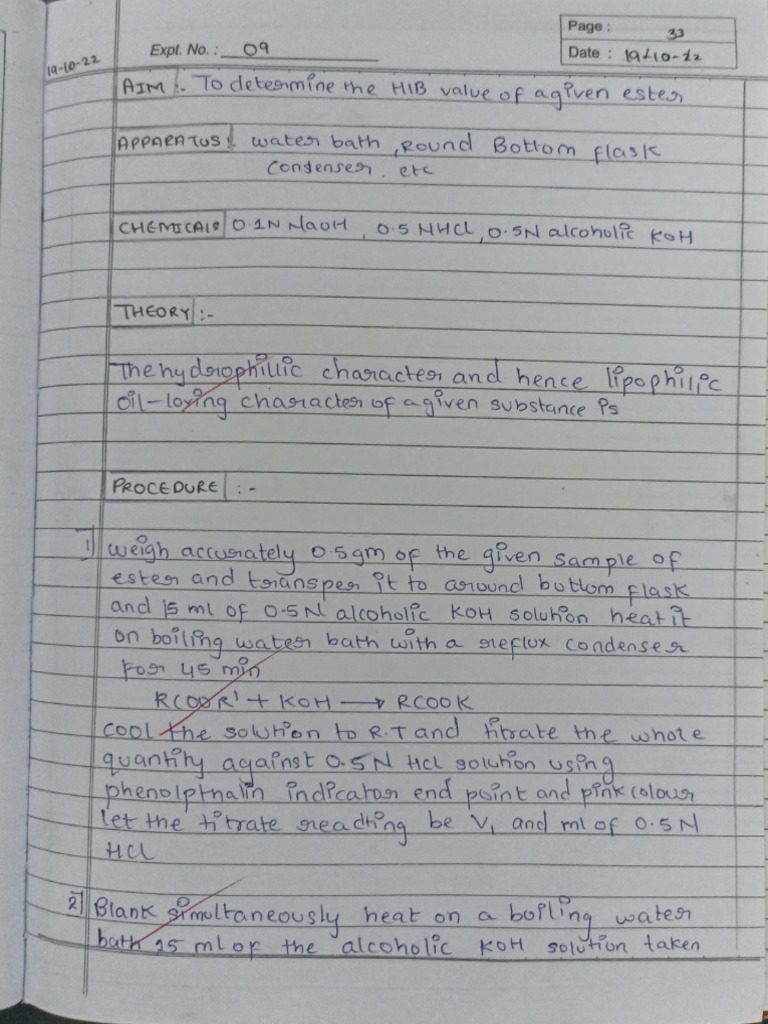 19-10-22
Expt. No. : 09
Page : 33
Date : 19-10-22
AIM :- To determine the HIB value of a given ester
APPARATUS : water bath , Round Bottom flask
Condenser . etc
CHEMICALS 0.1N NaOH , 0.5 NHCl, 0.5N alcoholic KOH
THEORY :-
The hydrophillic character and hence lipophilic
oil-loving character of a given substance is
PROCEDURE :-
1] weigh accurately 0.5gm of the given sample of
ester and transper it to around buttom flask
and 15 ml of 0.5N alcoholic KOH solution heat it
on boiling water bath with a reflux condenser
For 45 min
RCOOR' + KOH → RCOOK
cool the solution to R.T and titrate the whole
quantity against 0.5N HCl solution using
phenolpthalin indicator end point and pink colour
let the titrate reading be V1 and ml of 0.5N
HCL
2] Blank simultaneously heat on a boiling water
bath 15 ml of the alcoholic KOH solution taken